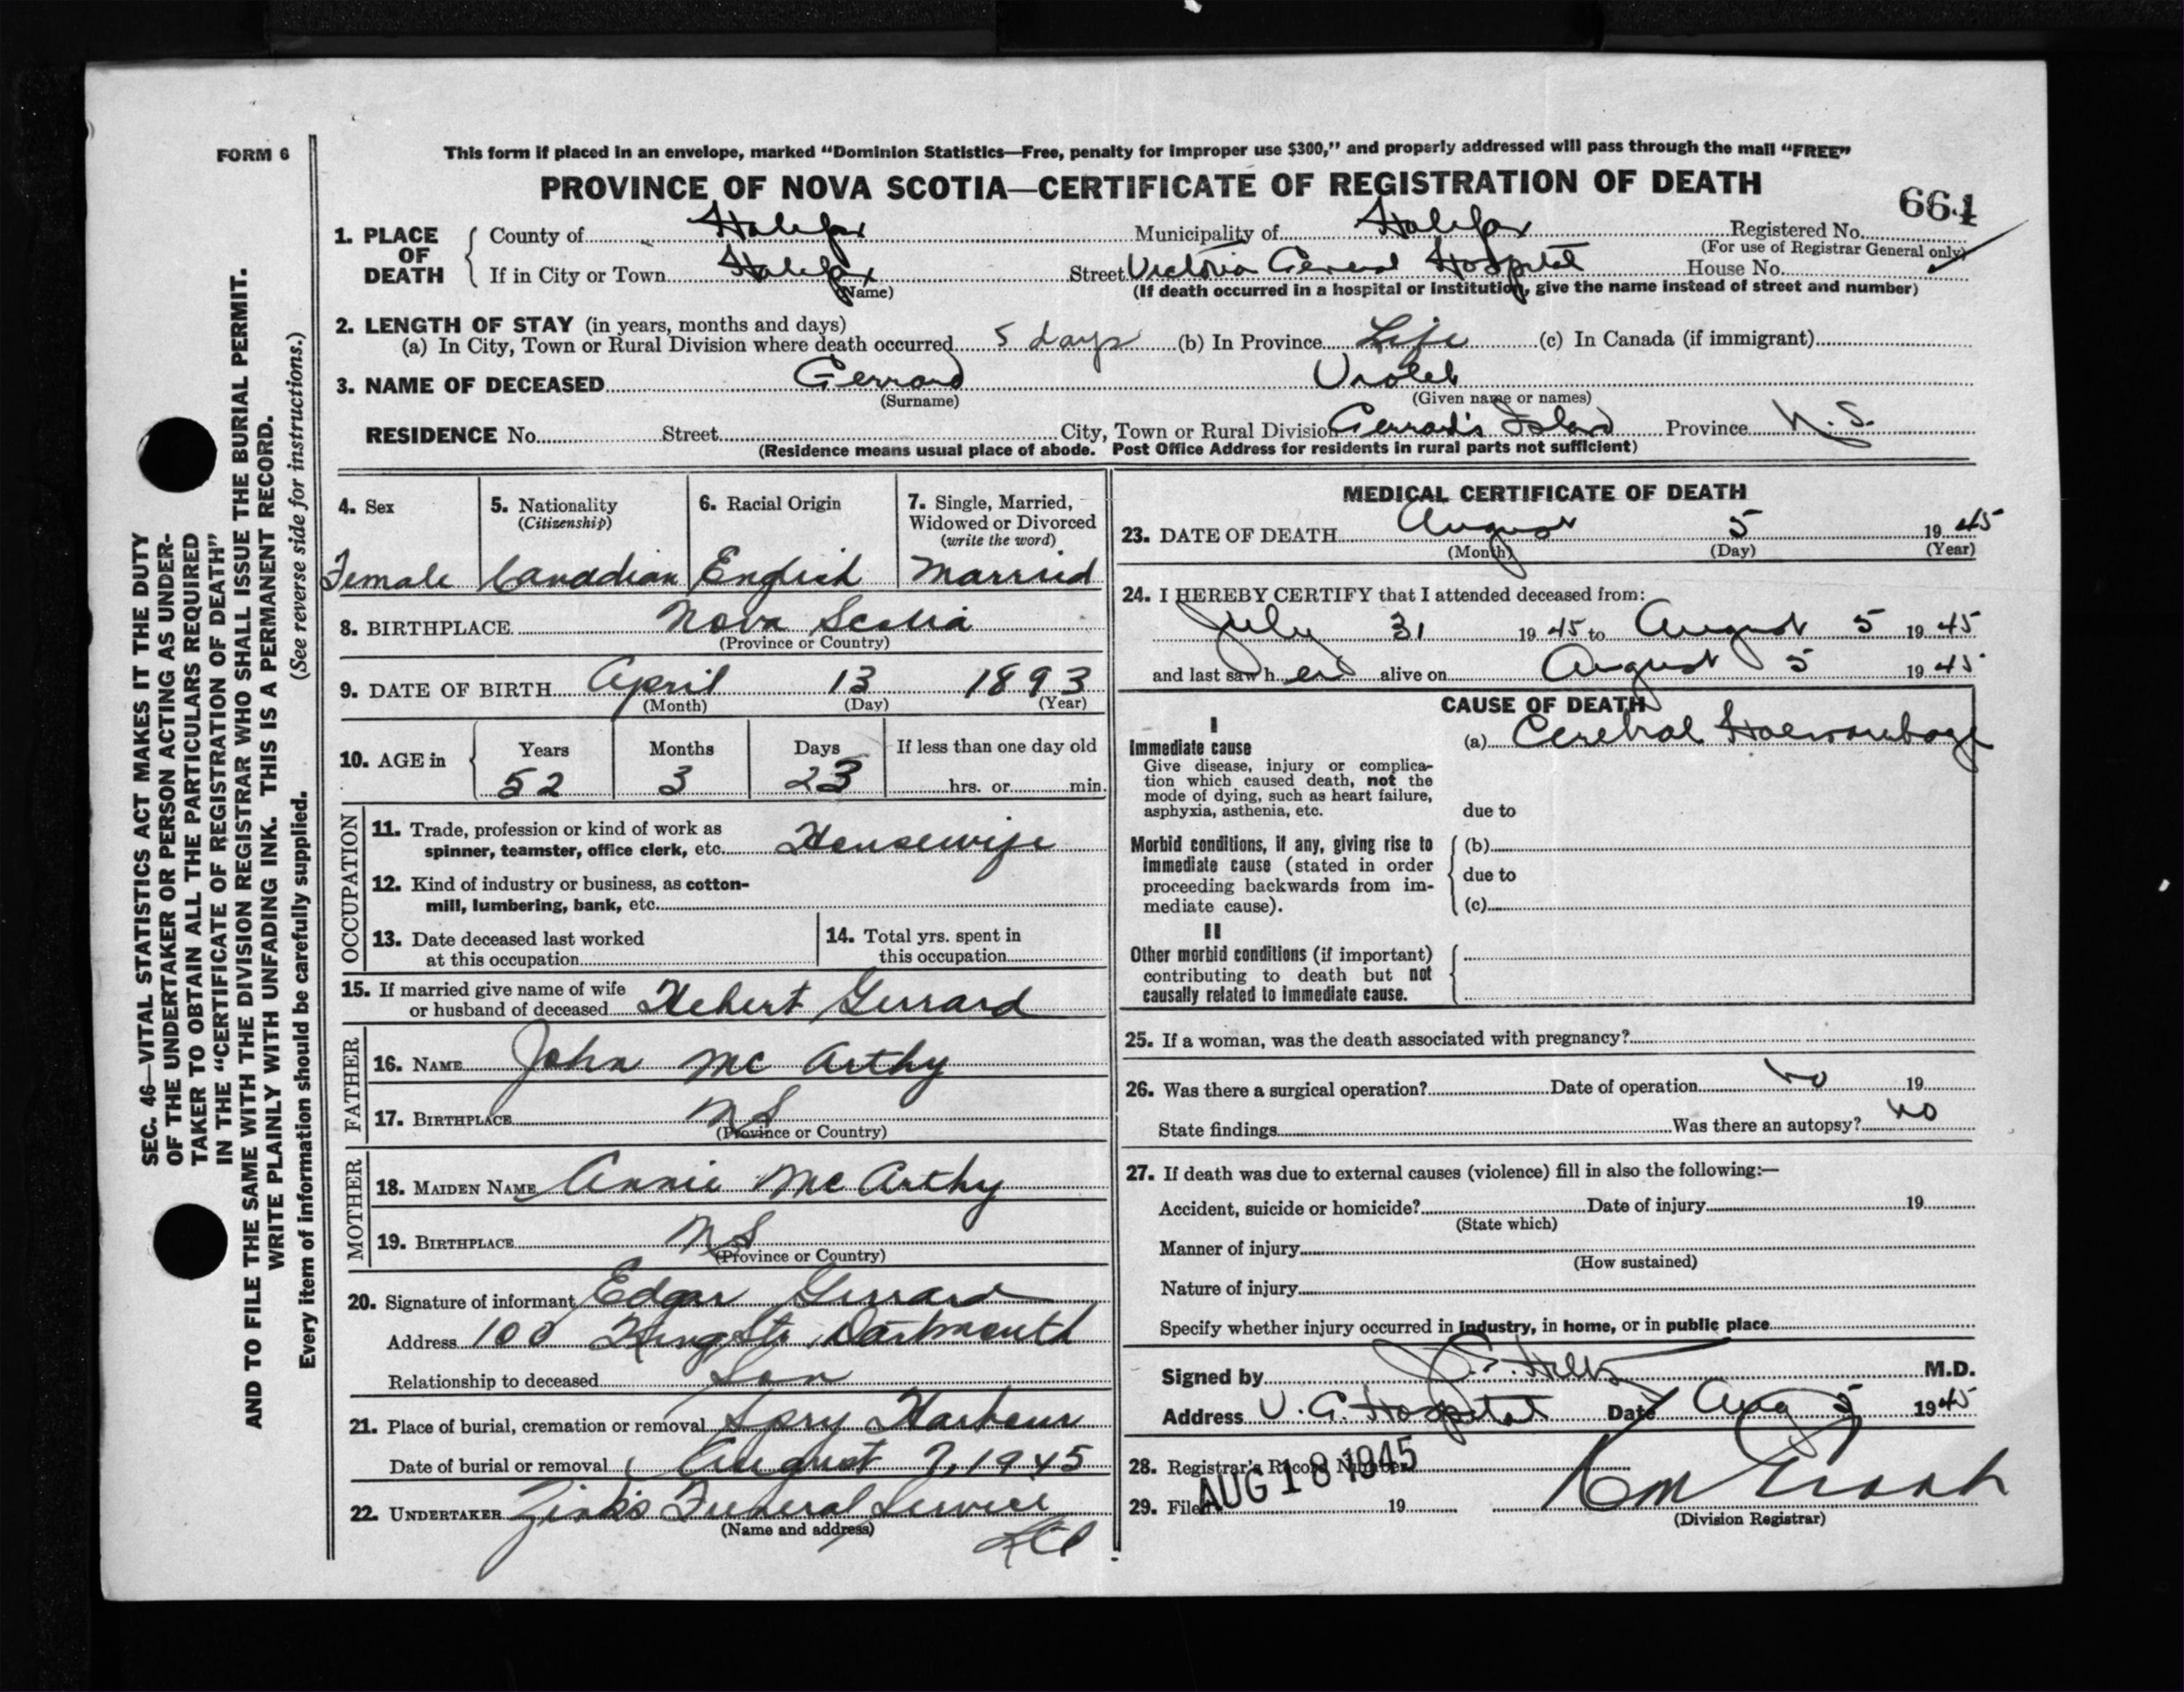 FORM 6
This form if placed in an envelope, marked “Dominion Statistics—Free, penalty for improper use $300,” and properly addressed will pass through the mail “FREE”
PROVINCE OF NOVA SCOTIA—CERTIFICATE OF REGISTRATION OF DEATH
664
1. PLACE OF DEATH
County of Halifax Municipality of Halifax Registered No.
(For use of Registrar General only)
If in City or Town Halifax Street Victoria General Hospital House No.
(Name) (If death occurred in a hospital or institution, give the name instead of street and number)
2. LENGTH OF STAY (in years, months and days)
(a) In City, Town or Rural Division where death occurred 5 days (b) In Province Life (c) In Canada (if immigrant)
3. NAME OF DECEASED Gerrard Violet
(Surname) (Given name or names)
RESIDENCE No. Street City, Town or Rural Division Gerrard's Island Province N.S.
(Residence means usual place of abode. Post Office Address for residents in rural parts not sufficient)
4. Sex
Female
5. Nationality
(Citizenship)
Canadian
6. Racial Origin
English
7. Single, Married,
Widowed or Divorced
(write the word)
Married
8. BIRTHPLACE Nova Scotia
(Province or Country)
9. DATE OF BIRTH April 13 1893
(Month) (Day) (Year)
10. AGE in
Years Months Days If less than one day old
52 3 23 hrs. or min.
OCCUPATION
11. Trade, profession or kind of work as
spinner, teamster, office clerk, etc. Housewife
12. Kind of industry or business, as cotton-
mill, lumbering, bank, etc.
13. Date deceased last worked
at this occupation
14. Total yrs. spent in
this occupation
15. If married give name of wife
or husband of deceased Hebert Gerrard
FATHER
16. NAME John Mc Arthy
17. BIRTHPLACE N S
(Province or Country)
MOTHER
18. MAIDEN NAME Annie Mc Arthy
19. BIRTHPLACE N S
(Province or Country)
20. Signature of informant Edgar Gerrard
Address 100 King St. Dartmouth
Relationship to deceased Son
21. Place of burial, cremation or removal Spry Harbour
Date of burial or removal August 7, 1945
22. UNDERTAKER Zink's Funeral Service
(Name and address) Ltd
MEDICAL CERTIFICATE OF DEATH
23. DATE OF DEATH August 5 1945
(Month) (Day) (Year)
24. I HEREBY CERTIFY that I attended deceased from:
July 31 1945 to August 5 1945
and last saw her alive on August 5 1945
CAUSE OF DEATH
I
Immediate cause
Give disease, injury or complica-
tion which caused death, not the
mode of dying, such as heart failure,
asphyxia, asthenia, etc.
(a) Cerebral Haemorrhage
due to
Morbid conditions, if any, giving rise to
immediate cause (stated in order
proceeding backwards from im-
mediate cause).
(b)
due to
(c)
II
Other morbid conditions (if important)
contributing to death but not
causally related to immediate cause.
25. If a woman, was the death associated with pregnancy?
26. Was there a surgical operation? Date of operation no 19
State findings Was there an autopsy? no
27. If death was due to external causes (violence) fill in also the following:—
Accident, suicide or homicide? Date of injury 19
(State which)
Manner of injury
(How sustained)
Nature of injury
Specify whether injury occurred in Industry, in home, or in public place
Signed by M.D.
Address V. G. Hospital Date Aug 5 1945
28. Registrar's Record Number
29. Filed AUG 18 1945 19
(Division Registrar)
SEC. 46—VITAL STATISTICS ACT MAKES IT THE DUTY
OF THE UNDERTAKER OR PERSON ACTING AS UNDER-
TAKER TO OBTAIN ALL THE PARTICULARS REQUIRED
IN THE “CERTIFICATE OF REGISTRATION OF DEATH”
AND TO FILE THE SAME WITH THE DIVISION REGISTRAR WHO SHALL ISSUE THE BURIAL PERMIT.
WRITE PLAINLY WITH UNFADING INK. THIS IS A PERMANENT RECORD.
Every item of information should be carefully supplied. (See reverse side for instructions.)